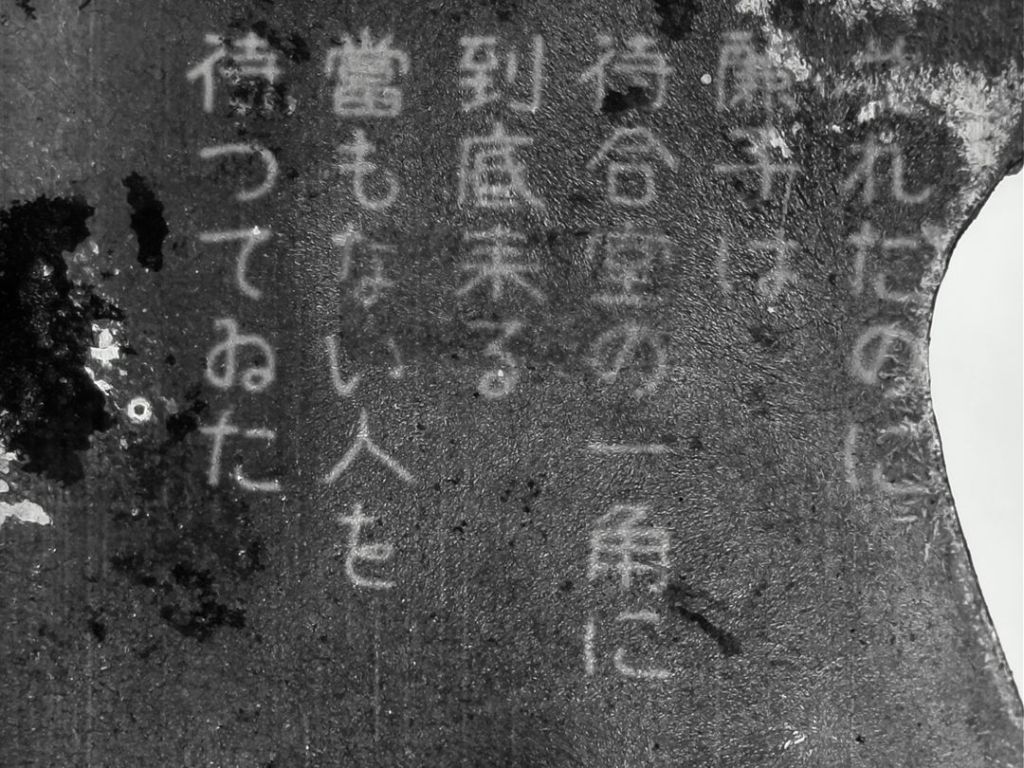 れたのに
子は
待合室の一角に
到底来る
當もない人を
待つてゐた